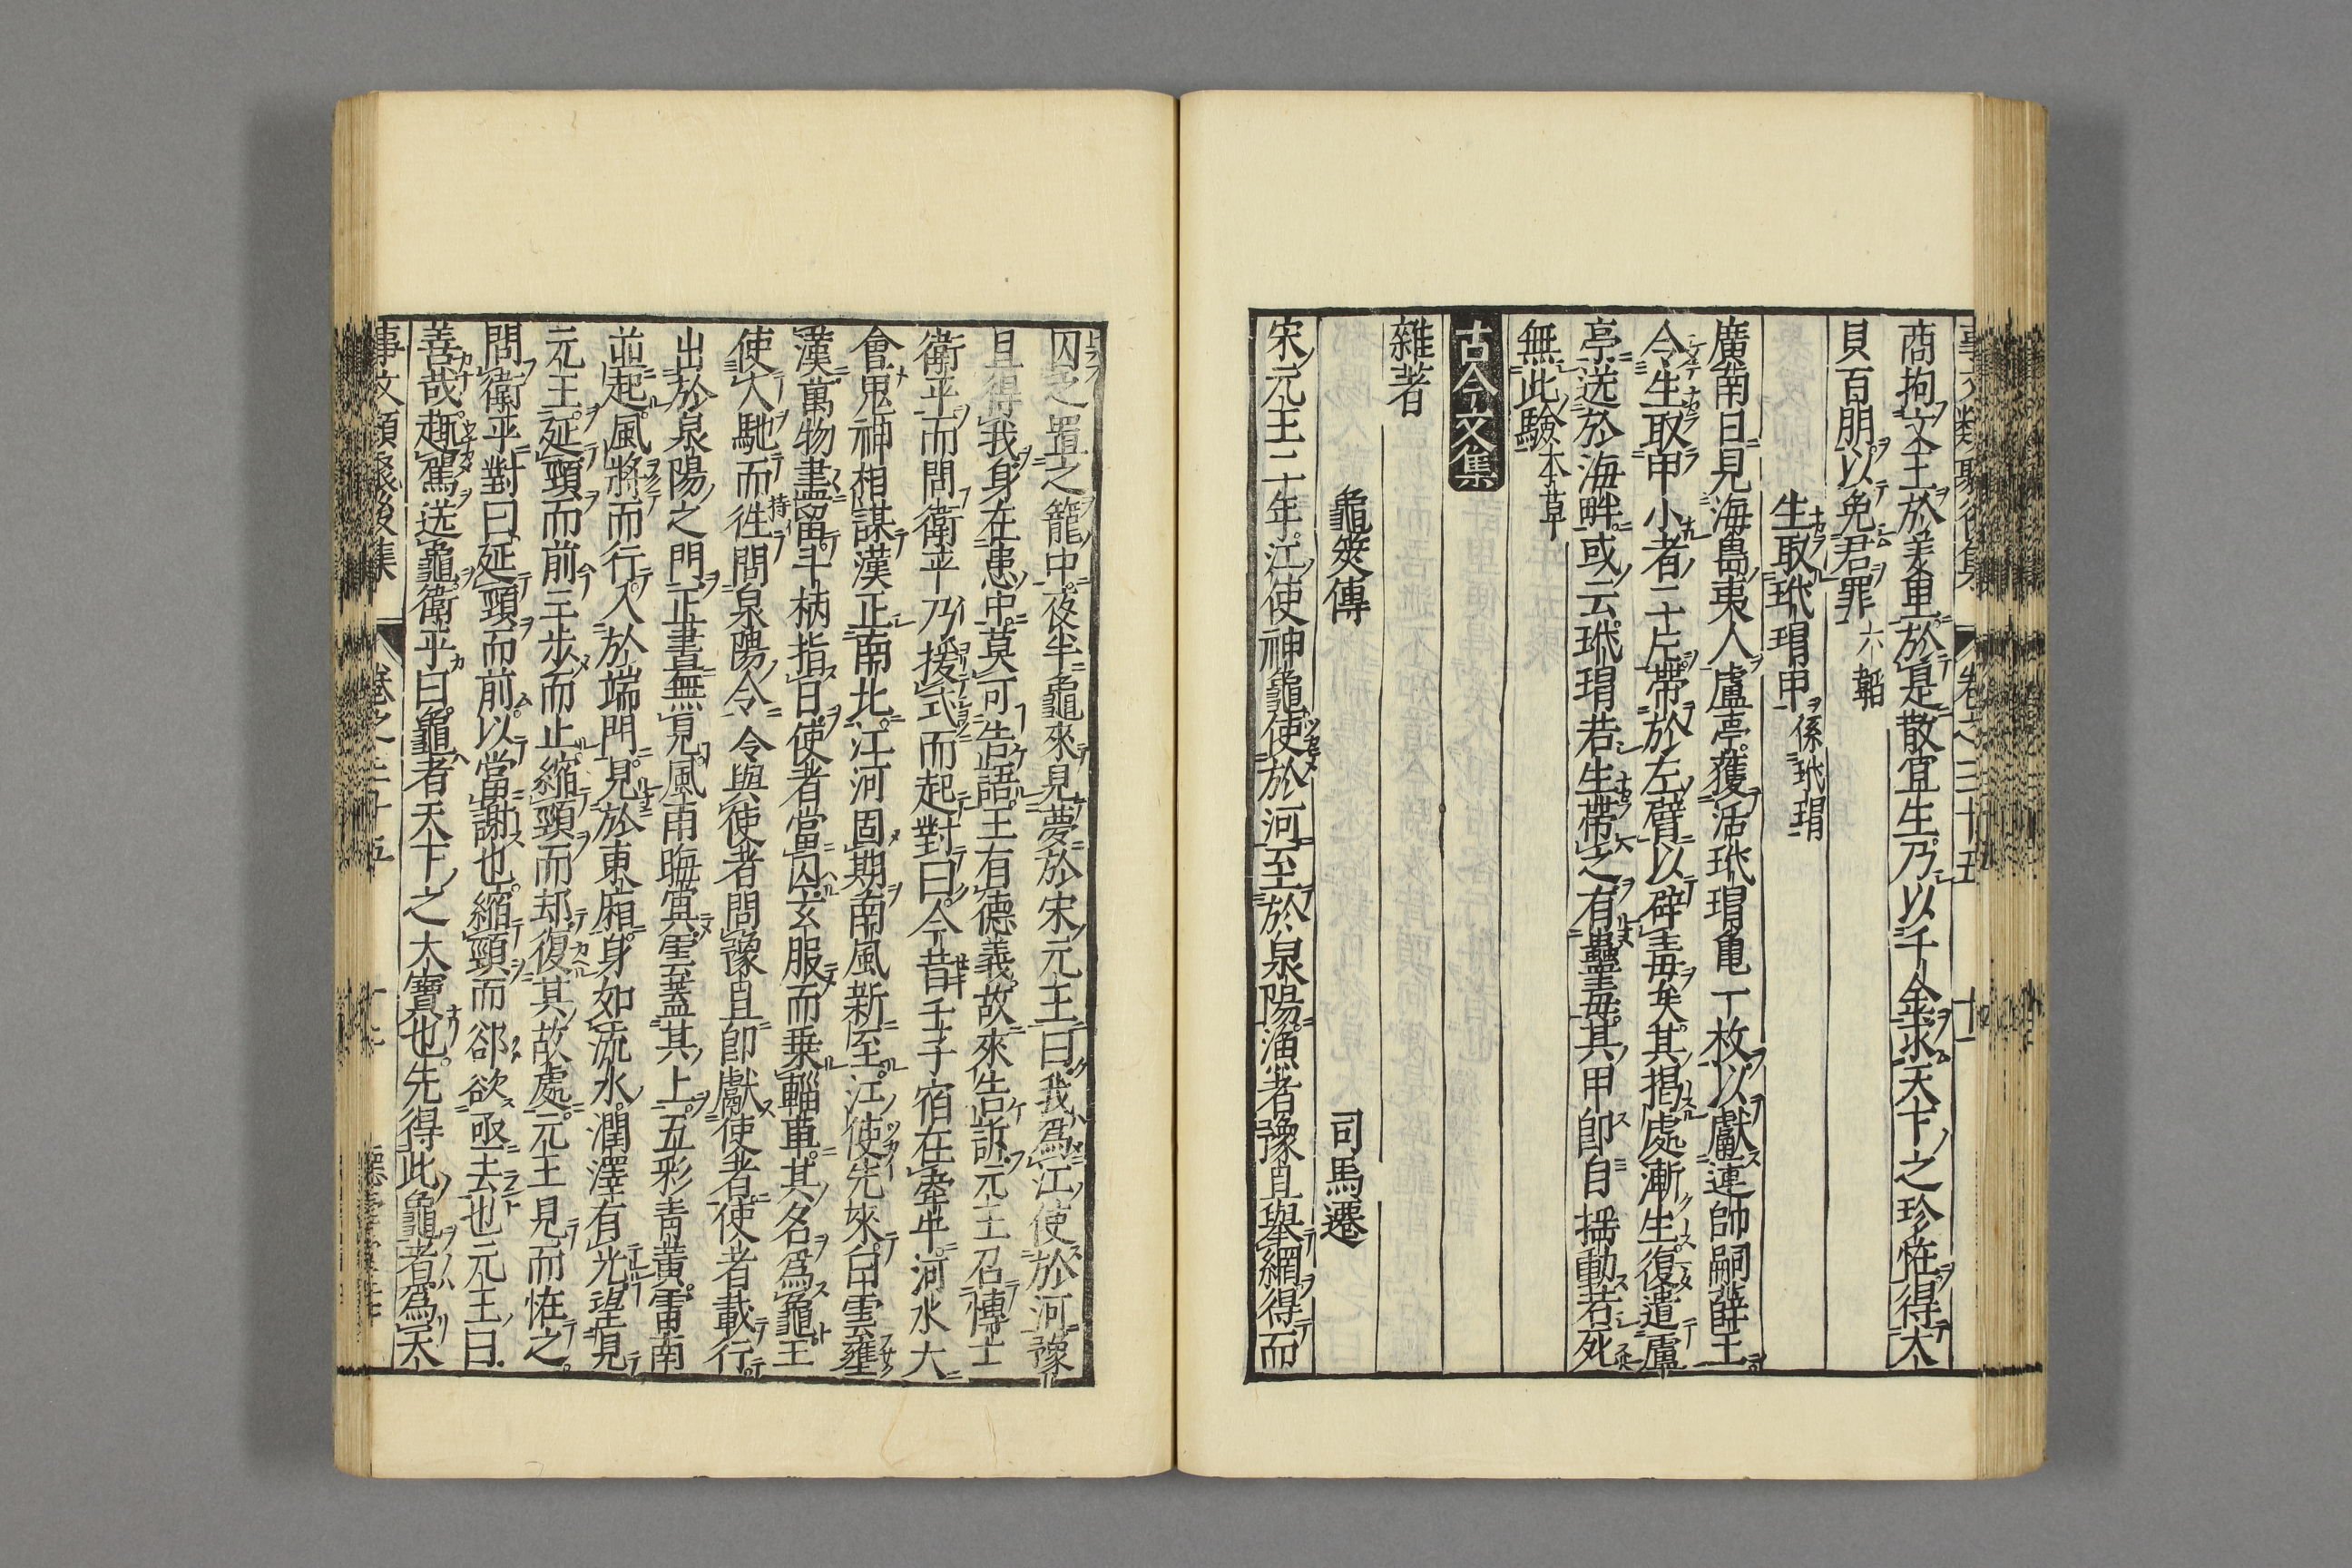 事文類聚後集 卷之三十五 十一
商拘文王於羑里於是散宜生乃以千金求天下之珍恠得大
貝百朋以免君罪六韜
生取玳瑁甲係玳瑁
廣南日見海島夷人盧亭獲活玳瑁龜一枚以獻連帥嗣薛王
令生取甲小者二片帶於左臂以辟毒矣其揭處漸生復遣盧
亭送於海畔或云玳瑁若生帶之有蠱毒其甲即自揺動若死
無此驗本草
古今文集
雜著
龜筴傳 司馬遷
宋元王二年江使神龜使於河至於泉陽漁者豫且舉網得而
囚之置之籠中夜半龜來見夢於宋元王曰我爲江使於河豫
且得我身在患中莫可告語王有德義故來告訴元王召博士
衛平而問衛平乃援式而起對曰今昔壬子宿在牽牛河水大
會鬼神相謀漢正南北江河固期南風新至江使先來白雲壅
漢萬物盡留斗柄指日使者當囚玄服而乗輜車其名爲龜王
使人馳而徃問泉陽令令與使者問豫且即獻使者使者載行
出於泉陽之門正晝無見風雨晦冥雲蓋其上五彩青黃雷雨
並起風將而行入於端門見於東廂身如流水潤澤有光望見
元王延頸而前三步而止縮頸而却復其故處元王見而恠之
問衛平對曰延頸而前以當謝也縮頸而郤欲亟去也元王曰
善哉趣駕送龜衛平曰龜者天下之大寶也先得此龜者爲天
事文類聚後集 卷之三十五